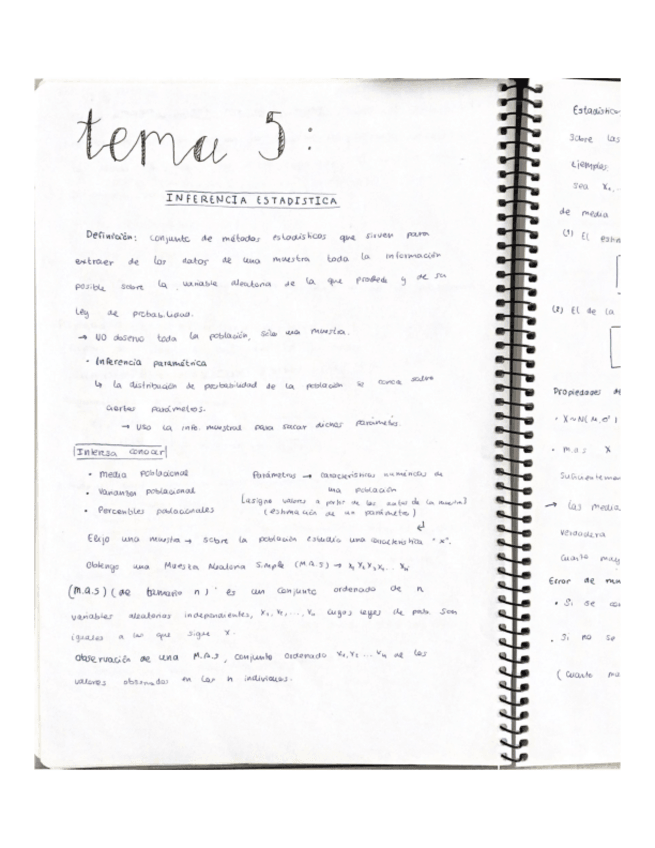 tema 5:
INFERENCIA ESTADISTICA
Definición: conjunto de métodos estadísticos que sirven para
extraer de los datos de una muestra toda la información
posible sobre la variable aleatoria de la que procede y de su
ley de probabilidad.
→ NO observo toda la población, sólo una muestra.
• Inferencia paramétrica
↳ la distribución de probabilidad de la población se conoce salvo
ciertos parámetros.
→ Uso la info. muestral para sacar dichos parámetros.
Interesa conocer
• Media poblacional
• Varianza poblacional
• Percentiles poblacionales
Parámetros → características numéricas de
una población
[asigna valores a partir de los datos de la muestra]
(estimación de un parámetro)
Elijo una muestra → sobre la población estudio una característica "X".
Obtengo una Muestra Aleatoria Simple (M.A.S) → X₁ X₂ X₃ X₄ ... Xₙ
(m.a.s) (de tamaño n) es un conjunto ordenado de n
variables aleatorias independientes, X₁, X₂, ..., Xₙ cuyas leyes de prob. son
iguales a la que sigue X.
Observación de una M.A.S, conjunto ordenado X₁, X₂ ... Xₙ de los
valores observados en los n individuos.
sobre las
Ejemplos:
Sea X₁, ..
de media
(1) El
(2) El de la
Propiedades
• X~N(μ,σ²)
• m.a.s X
→ las media
verdadera
Cuanto may
Error de
• Si se
• Si no se
(Cuanto